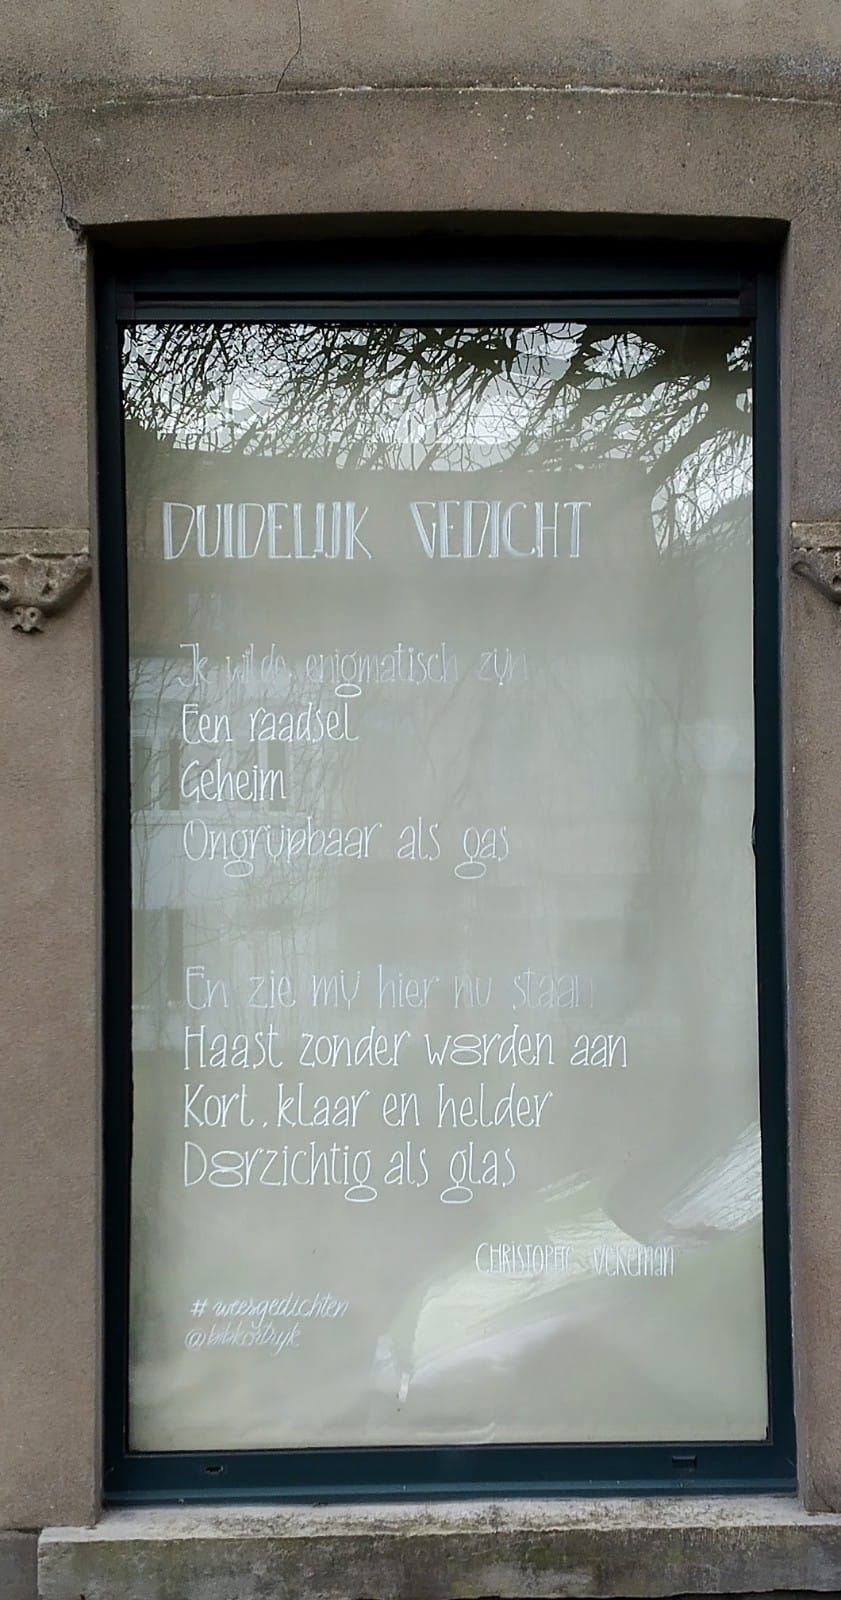 DUIDELIJK GEDICHT
Ik wilde enigmatisch zijn
Een raadsel
Geheim
Ongrijpbaar als gas
En zie mij hier nu staan
Haast zonder woorden aan
Kort, klaar en helder
Doorzichtig als glas
CHRISTOPHE VEKEMAN
# weesgedichten
@bibkortrijk